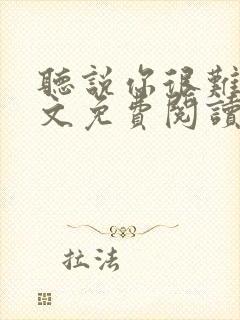 聽說你很難
文免費閱讀
拉法